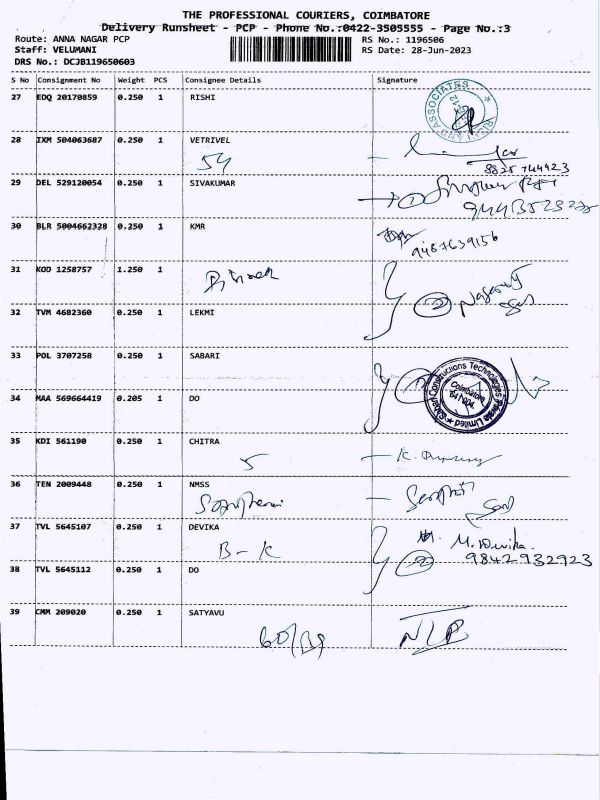 THE PROFESSIONAL COURIERS, COIMBATORE
Delivery Runsheet - PCP - Phone No.:0422-3505555 - Page No.:3
Route: ANNA NAGAR PCP RS No.: 1196506
Staff: VELUMANI RS Date: 28-Jun-2023
DRS No.: DCJB119650603
S No Consignment No Weight PCS Consignee Details Signature
27 EDQ 20170859 0.250 1 RISHI
28 IXM 504063687 0.250 1 VETRIVEL
54
29 DEL 529120054 0.250 1 SIVAKUMAR
30 BLR 5004662328 0.250 1 KMR
9487639156
31 KOD 1258757 1.250 1
2
32 TVM 4682360 0.250 1 LEKMI
33 POL 3707258 0.250 1 SABARI
Coimbatore
641 004
34 MAA 569664419 0.205 1 DO
35 KDI 561190 0.250 1 CHITRA
5
36 TEN 2009448 0.250 1 NMSS
37 TVL 5645107 0.250 1 DEVIKA
B - K
M. Devika.
9842932923
2
38 TVL 5645112 0.250 1 DO
39 CMM 209020 0.250 1 SATYAVU
NLP